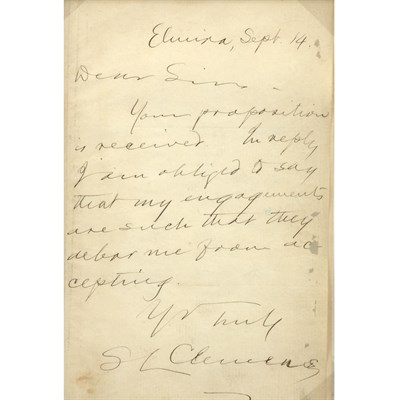 Elmira, Sept. 14.
Dear Sir —
Your proposition
is received. In reply
I am obliged to say
that my engagements
are such that they
debar me from ac-
cepting.
Yr truly
S L Clemens